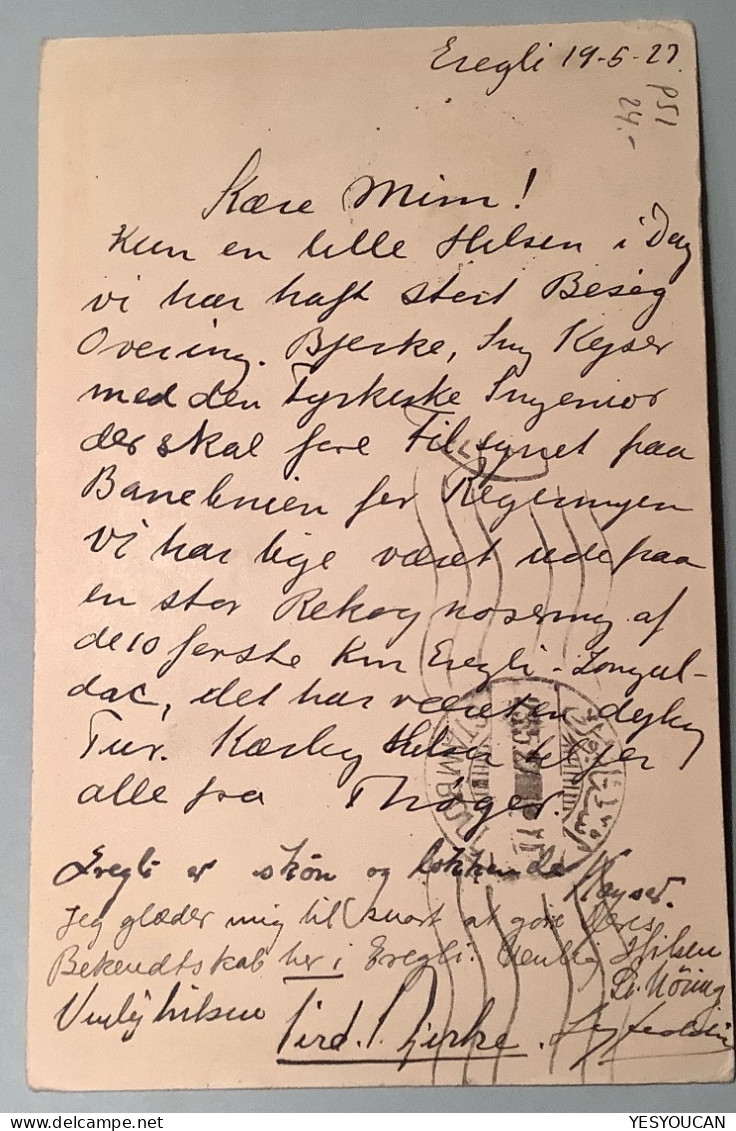 Eregli 19-5-27.
P51
24.-
Kære Mim!
Kun en lille Hilsen i Dag
vi har haft stort Besøg
Overing. Bjerke, Ing Kejser
med den Tyrkiske Ingeniør
der skal føre Tilsynet paa
Banelinien for Regeringen
vi har lige været ude paa
en stor Rekognosering af
de 10 første Km Eregli-Zongul-
dac, det har været en dejlig
Tur. Kærlig Hilsen til jer
alle fra Thøger.
Eregli er skøn og lokkende Kayser.
Jeg glæder mig til snart at gøre Deres
Bekendtskab her i Eregli. Venlig Hilsen
Venlig hilsen Ferd. Bjerke.
STAMBOUL
YESYOUCAN